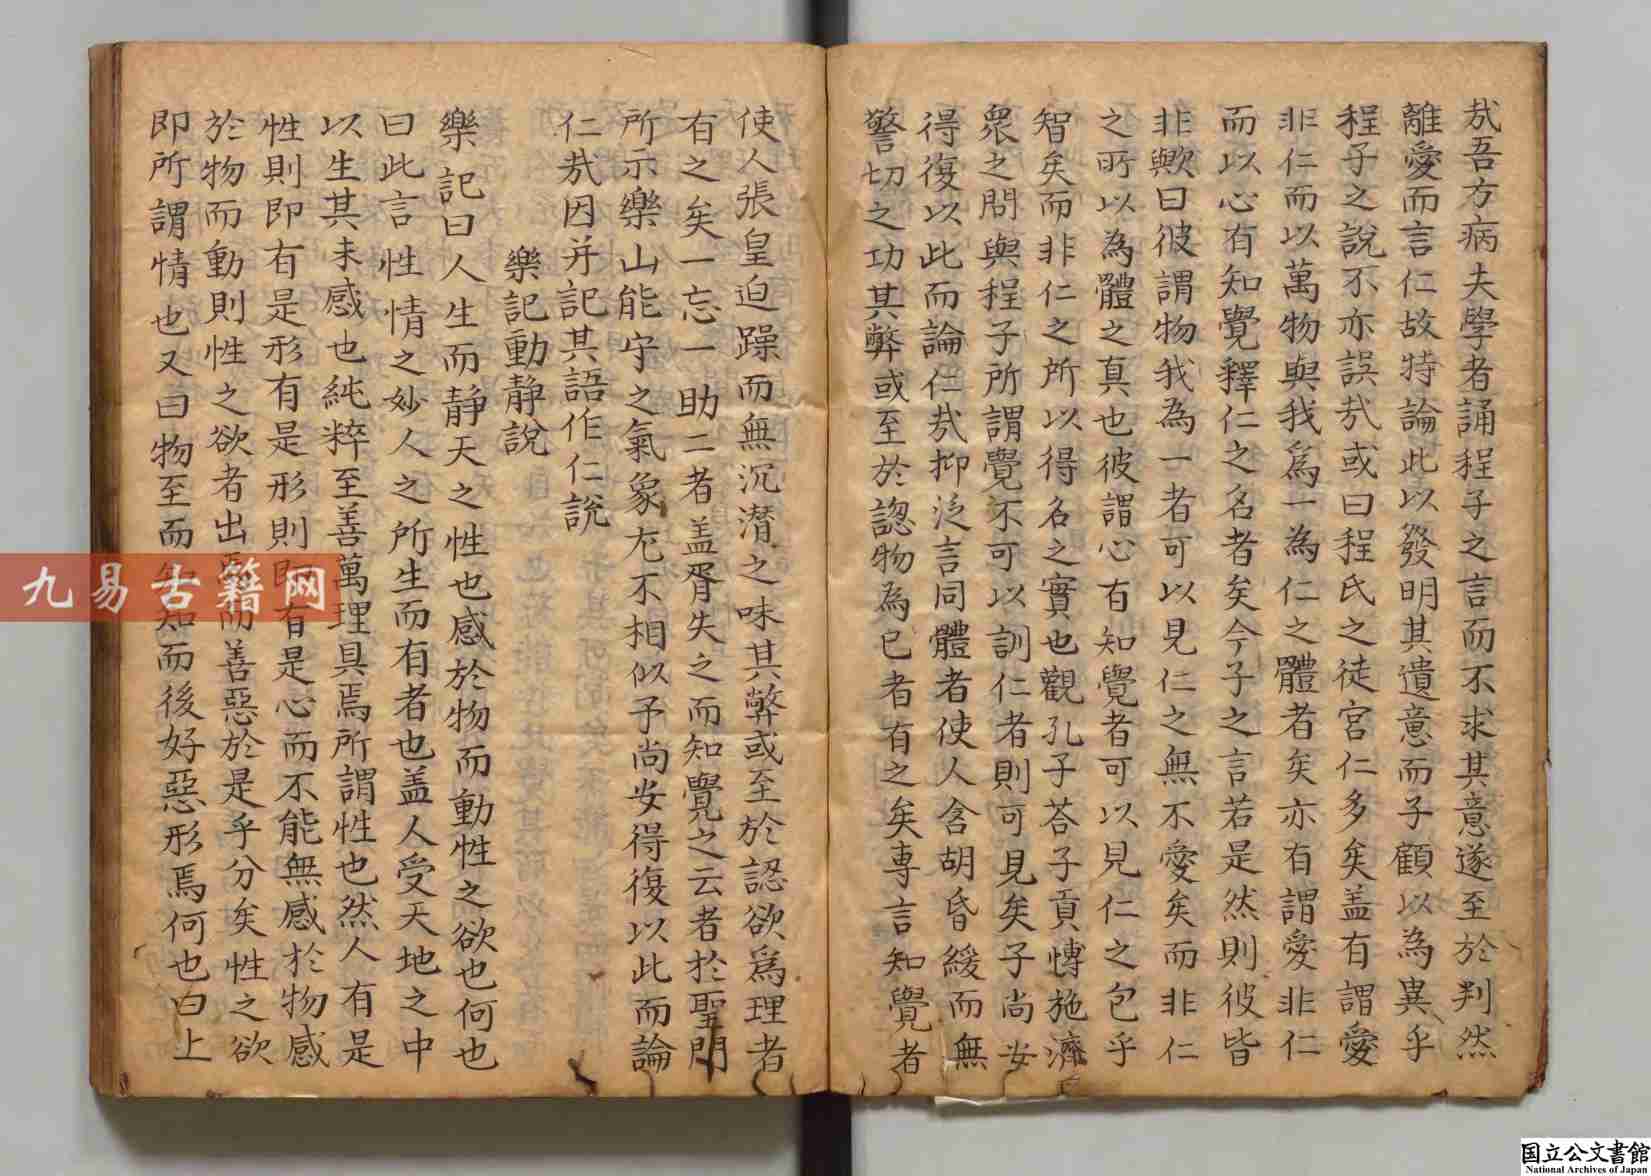 㢤吾方病夫學者誦程子之言而不求其意遂至於判然
離愛而言仁故特論此以發明其遺意而子顧以為異乎
程子之說不亦誤㢤或曰程氏之徒言仁多矣盖有謂愛
非仁而以萬物與我爲一為仁之體者矣亦有謂愛非仁
而以心有知覺釋仁之名者矣今子之言若是然則彼皆
非歟曰彼謂物我為一者可以見仁之無不愛矣而非仁
之所以為體之真也彼謂心有知覺者可以見仁之包乎
智矣而非仁之所以得名之實也觀孔子荅子貢愽施濟
衆之問與程子所謂覺不可以訓仁者則可見矣子尚安
得復以此而論仁㢤抑泛言同體者使人含胡昏緩而無
警切之功其弊或至於認物為已者有之矣専言知覺者
使人張皇迫躁而無沉潜之味其弊或至於認欲爲理者
有之矣一忘一助二者盖胥失之而知覺之云者於聖門
所示樂山能守之氣象尤不相似予尚安得復以此而論
仁㢤因并記其語作仁說
樂記動静說
樂記曰人生而静天之性也感於物而動性之欲也何也
曰此言性情之妙人之所生而有者也盖人受天地之中
以生其未感也純粹至善萬理具焉所謂性也然人有是
性則即有是形有是形則即有是心而不能無感於物感
於物而動則性之欲者出焉而善惡於是乎分矣性之欲
即所謂情也又曰物至而知知而後好惡形焉何也曰上
九易古籍网
国立公文書館
National Archives of Japan